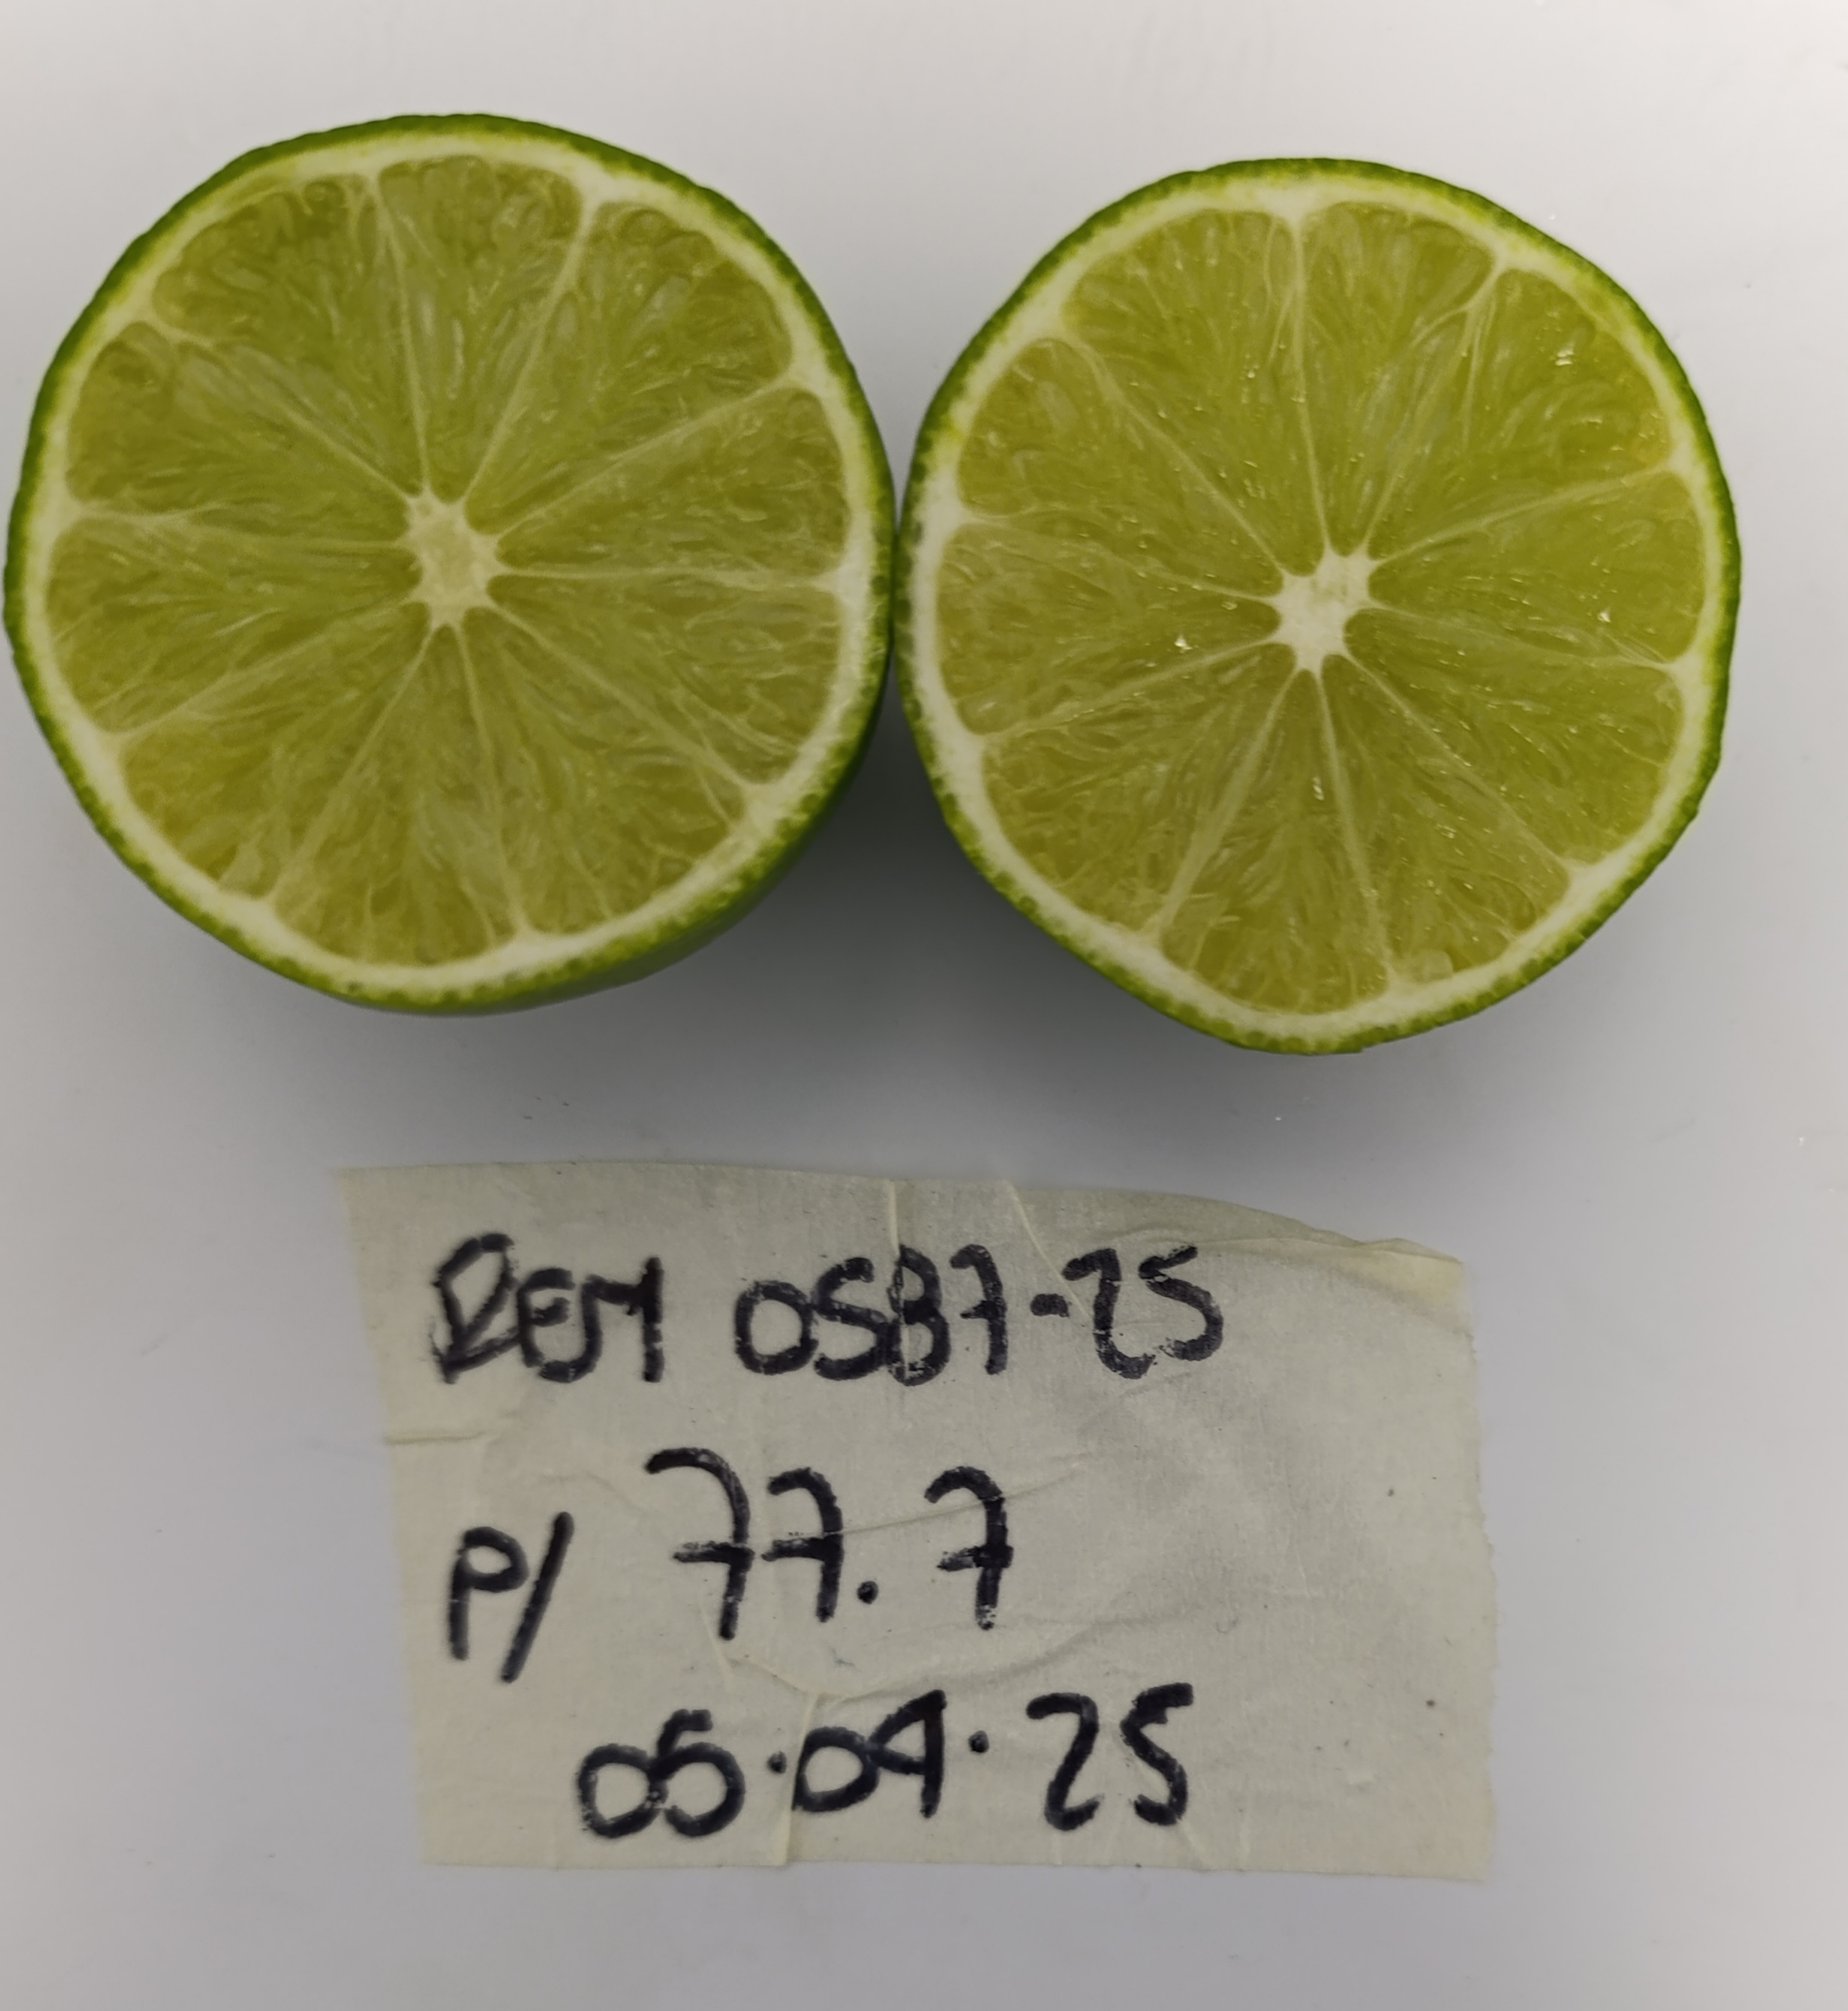 REM 0587-25
P/ 77.7
05.04.25